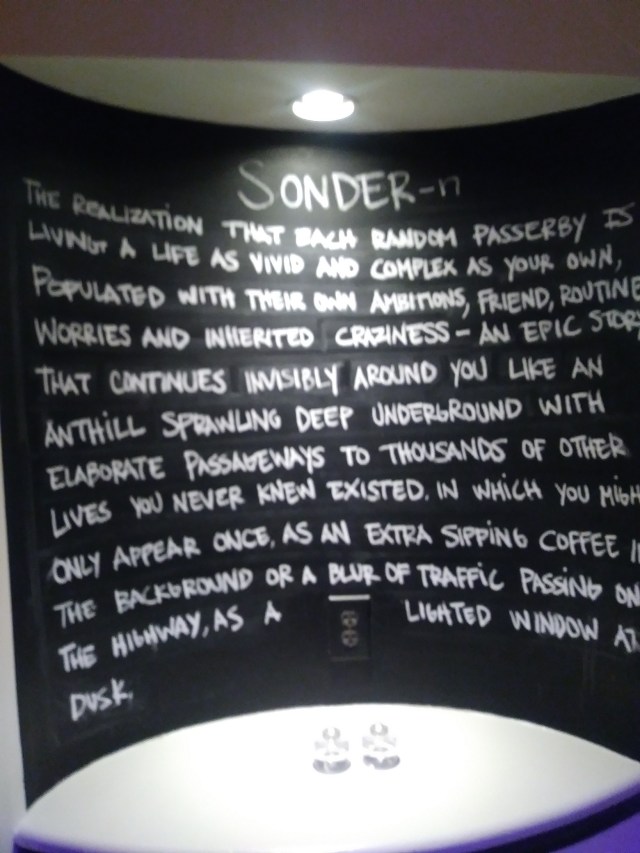 SONDER-n
THE REALIZATION THAT EACH RANDOM PASSERBY IS
LIVING A LIFE AS VIVID AND COMPLEX AS YOUR OWN,
POPULATED WITH THEIR OWN AMBITIONS, FRIEND, ROUTINE
WORRIES AND INHERITED CRAZINESS - AN EPIC STORY
THAT CONTINUES INVISIBLY AROUND YOU LIKE AN
ANTHILL SPRAWLING DEEP UNDERGROUND WITH
ELABORATE PASSAGEWAYS TO THOUSANDS OF OTHER
LIVES YOU NEVER KNEW EXISTED. IN WHICH YOU MIGH
ONLY APPEAR ONCE, AS AN EXTRA SIPPING COFFEE I
THE BACKGROUND OR A BLUR OF TRAFFIC PASSING ON
THE HIGHWAY, AS A LIGHTED WINDOW AT
DUSK.